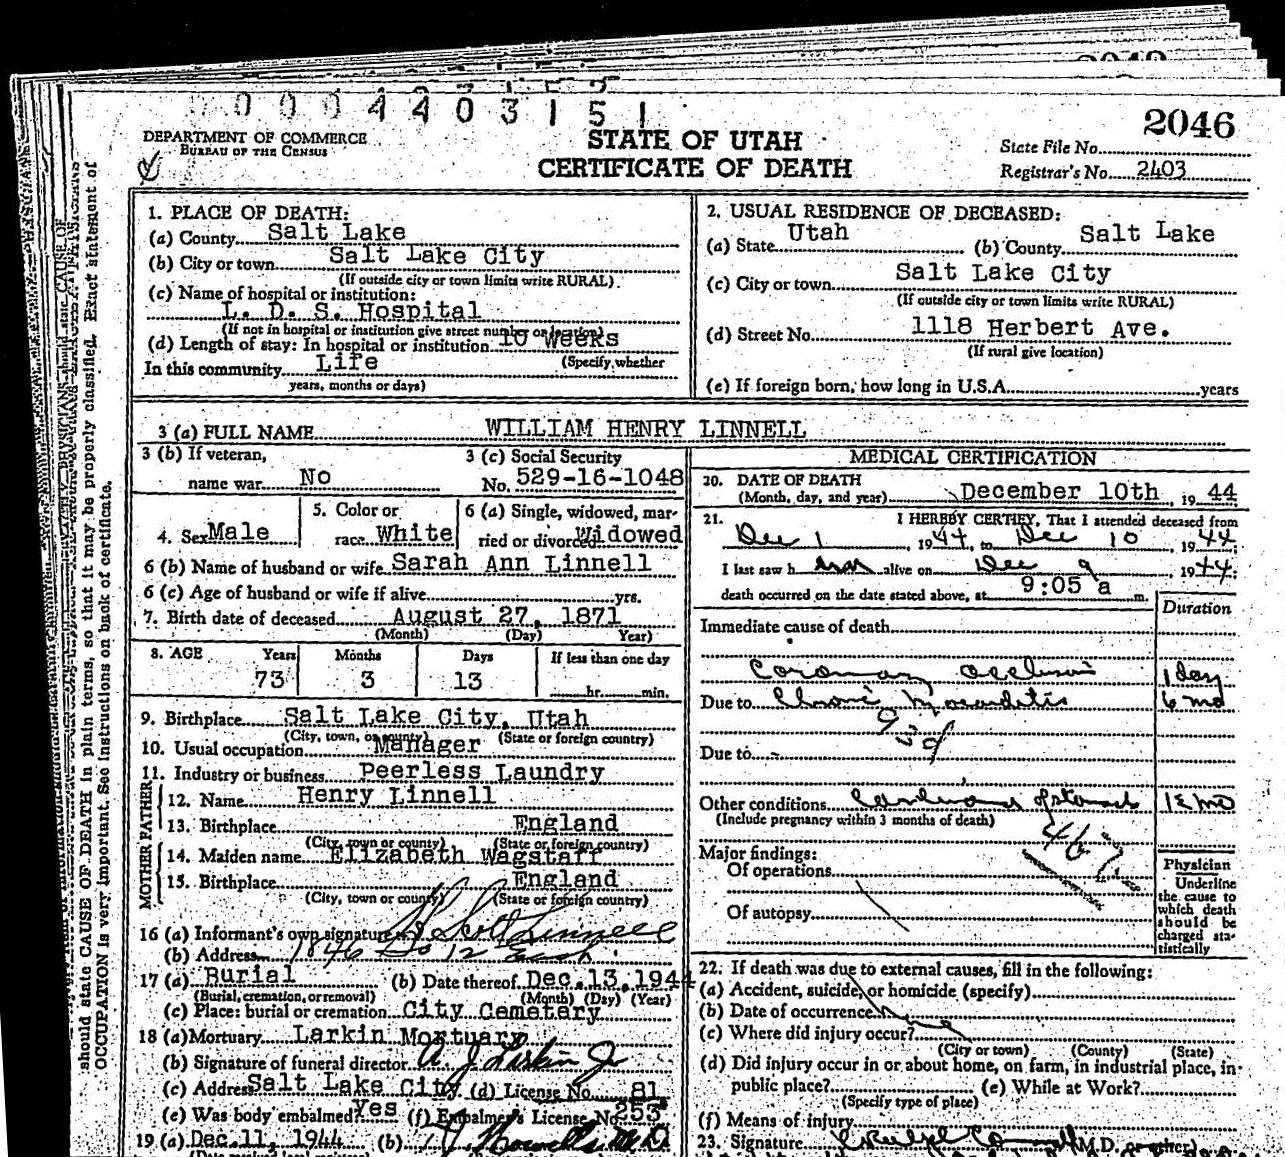 2046
0004403151
DEPARTMENT OF COMMERCE
BUREAU OF THE CENSUS
STATE OF UTAH
CERTIFICATE OF DEATH
State File No.
Registrar's No. 2403
1. PLACE OF DEATH:
(a) County Salt Lake
(b) City or town Salt Lake City
(If outside city or town limits write RURAL)
(c) Name of hospital or institution:
L. D. S. Hospital
(If not in hospital or institution give street number or location)
(d) Length of stay: In hospital or institution 10 Weeks
(Specify whether
In this community Life
years, months or days)
2. USUAL RESIDENCE OF DECEASED:
(a) State Utah (b) County Salt Lake
(c) City or town Salt Lake City
(If outside city or town limits write RURAL)
(d) Street No. 1118 Herbert Ave.
(If rural give location)
(e) If foreign born, how long in U.S.A. years
3 (a) FULL NAME WILLIAM HENRY LINNELL
3 (b) If veteran,
name war No
3 (c) Social Security
No. 529-16-1048
4. Sex Male
5. Color or
race White
6 (a) Single, widowed, mar-
ried or divorced Widowed
6 (b) Name of husband or wife Sarah Ann Linnell
6 (c) Age of husband or wife if alive yrs.
7. Birth date of deceased August 27, 1871
(Month) (Day) Year)
8. AGE Years Months Days If less than one day
73 3 13 hr. min.
9. Birthplace Salt Lake City, Utah
(City, town, or county) (State or foreign country)
10. Usual occupation Manager
11. Industry or business Peerless Laundry
FATHER
12. Name Henry Linnell
13. Birthplace England
(City, town or county) (State or foreign country)
MOTHER
14. Maiden name Elizabeth Wagstaff
15. Birthplace England
(City, town or county) (State or foreign country)
16 (a) Informant's own signature Scott Linnell
(b) Address 1846 So 12 East
17 (a) Burial (b) Date thereof Dec. 13, 1944
(Burial, cremation, or removal) (Month) (Day) (Year)
(c) Place: burial or cremation City Cemetery
18 (a) Mortuary Larkin Mortuary
(b) Signature of funeral director A. J. Larkin Jr
(c) Address Salt Lake City (d) License No. 81
(e) Was body embalmed? Yes (f) Embalmer's License No. 253
19 (a) Dec. 11, 1944 (b) M.D.
MEDICAL CERTIFICATION
20. DATE OF DEATH
(Month, day, and year) December 10th 1944
21. I HEREBY CERTIFY, That I attended deceased from
Dec 1, 1944, to Dec 10, 1944;
I last saw him alive on Dec 9 1944;
death occurred on the date stated above, at 9:05 a m.
Duration
Immediate cause of death
Coronary occlusion 1 day
Due to Chronic Myocarditis 6 mo
93d
Due to
Other conditions Carcinoma of stomach 18 mo
(Include pregnancy within 3 months of death)
46
Major findings:
Of operations
Of autopsy
Physician
Underline
the cause to
which death
should be
charged sta-
tistically
22. If death was due to external causes, fill in the following:
(a) Accident, suicide, or homicide (specify)
(b) Date of occurrence
(c) Where did injury occur?
(City or town) (County) (State)
(d) Did injury occur in or about home, on farm, in industrial place, in
public place? (e) While at Work?
(Specify type of place)
(f) Means of injury
23. Signature (M.D. or other)
should state CAUSE OF DEATH in plain terms, so that it may be properly classified. Exact statement of
OCCUPATION is very important. See instructions on back of certificate.